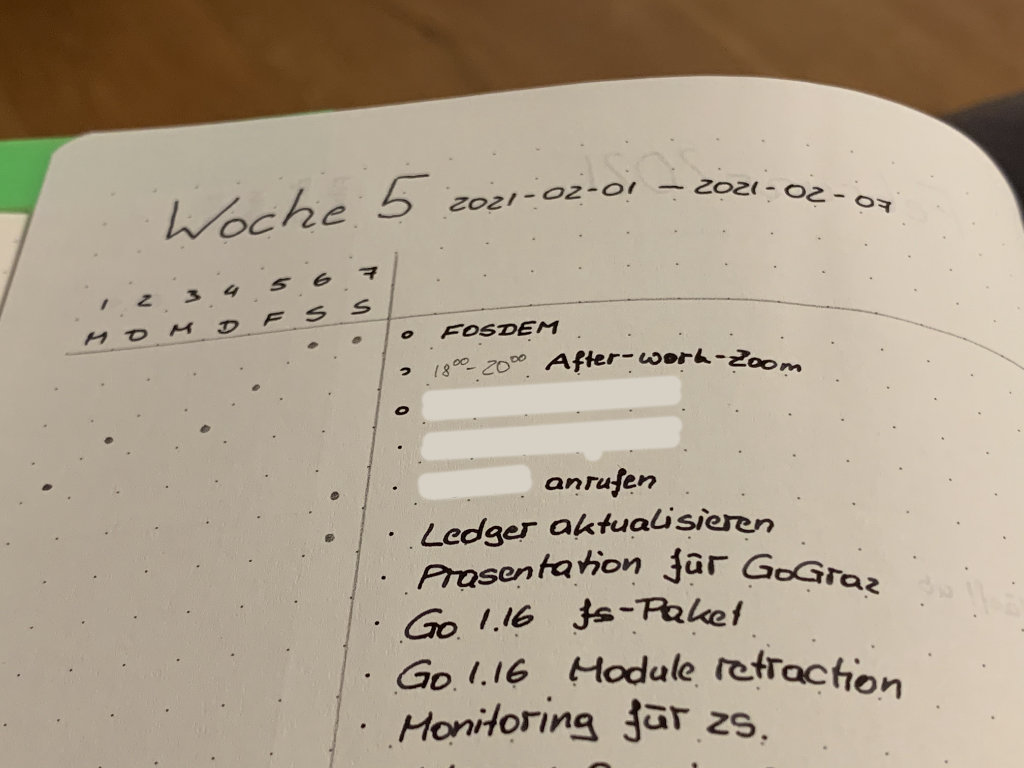 Woche 5 2021-02-01 – 2021-02-07
1 2 3 4 5 6 7
M D M D F S S
FOSDEM
18⁰⁰-20⁰⁰ After-work-Zoom
anrufen
Ledger aktualisieren
Präsentation für GoGraz
Go 1.16 fs-Paket
Go 1.16 Module retraction
Monitoring für zs.